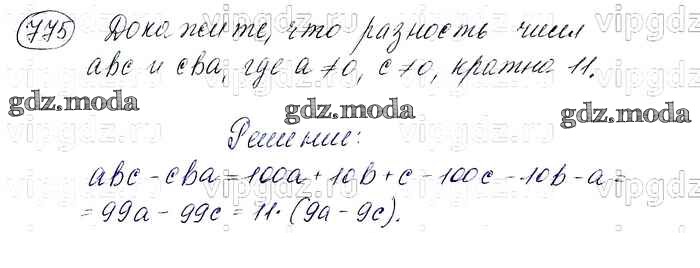 775 Докажите, что разность чисел
abc и cba, где a≠0, c≠0, кратна 11.
gdz.moda gdz.moda gdz.moda
Решение:
abc - cba = 100a + 10b + c - 100c - 10b - a =
= 99a - 99c = 11·(9a - 9c).